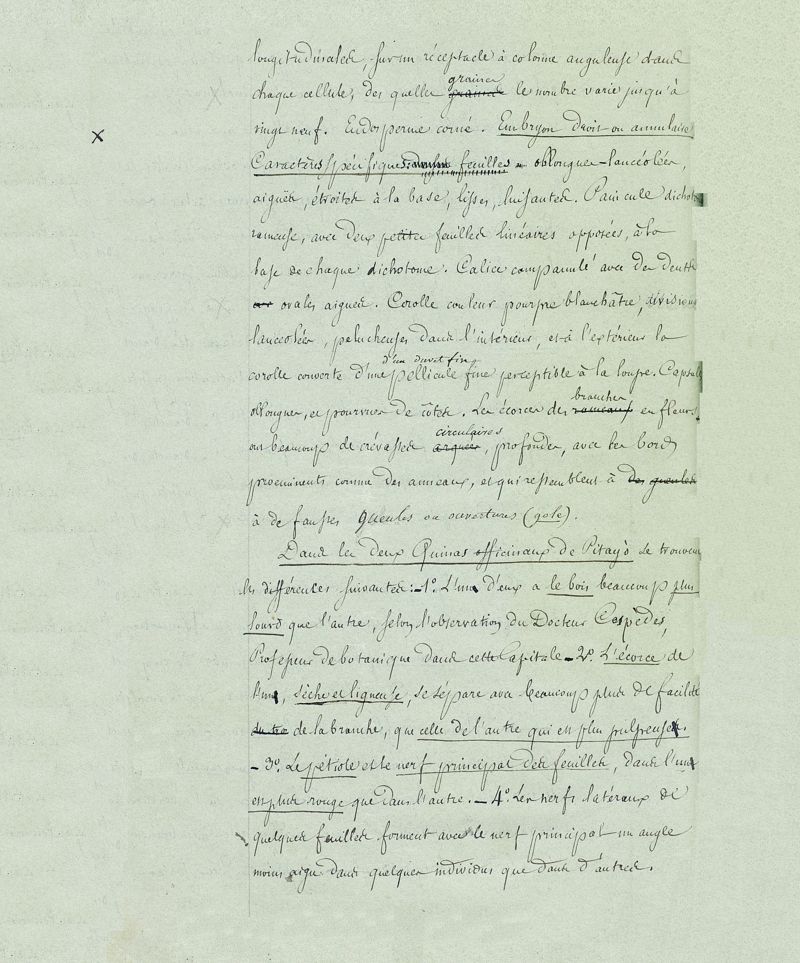 longitudinales, sur un réceptacle à colonne anguleuse dans
chaque cellule, des quelles graines le nombre varie jusqu'à
vingt neuf. Endosperme corné. Embryon droit ou annulaire
Caractères spécifiques: feuilles oblongues-lancéolées,
aiguës, étroites à la base, lisses, luisantes. Panicule dichoto
rameuse, avec deux petites feuilles linéaires opposées, à la
base de chaque dichotome. Calice campanulé avec des dents
ovales aigues. Corolle couleur pourpre blanchâtre, divisions
lancéolées, pelucheuses dans l'intérieur, et à l'extérieur la
corolle couverte d'une pellicule d'un duvet fin fine perceptible à la loupe. Capsules
oblongues, et pourvues de côtes. Les écorces des rameaux branches en fleurs,
ont beaucoup de crévasses arquées circulaires, profondes, avec les bords
proeminents comme des anneaux, et qui ressemblent à des gueules
à de fausses gueules ou ouvertures (gole).
Dans les deux Quinas officinaux de Pitayò se trouvent
les différences suivantes: -1º. L'un d'eux a le bois beaucoup plus
lourd que l'autre, selon l'observation du Docteur Cespèdes,
Professeur de botanique dans cette Capitale - 2º. L'écorce de
l'un, sèche et ligneuse, se sépare avec beaucoup plus de facilité
de la branche, que celle de l'autre qui est plus pulpeuse.
- 3º. Le pétiole et le nerf principal des feuilles, dans l'un
est plus rouge que dans l'autre. - 4º. Les nerfs latéraux de
quelques feuilles forment avec le nerf principal un angle
moins aigu dans quelques individus que dans d'autres.